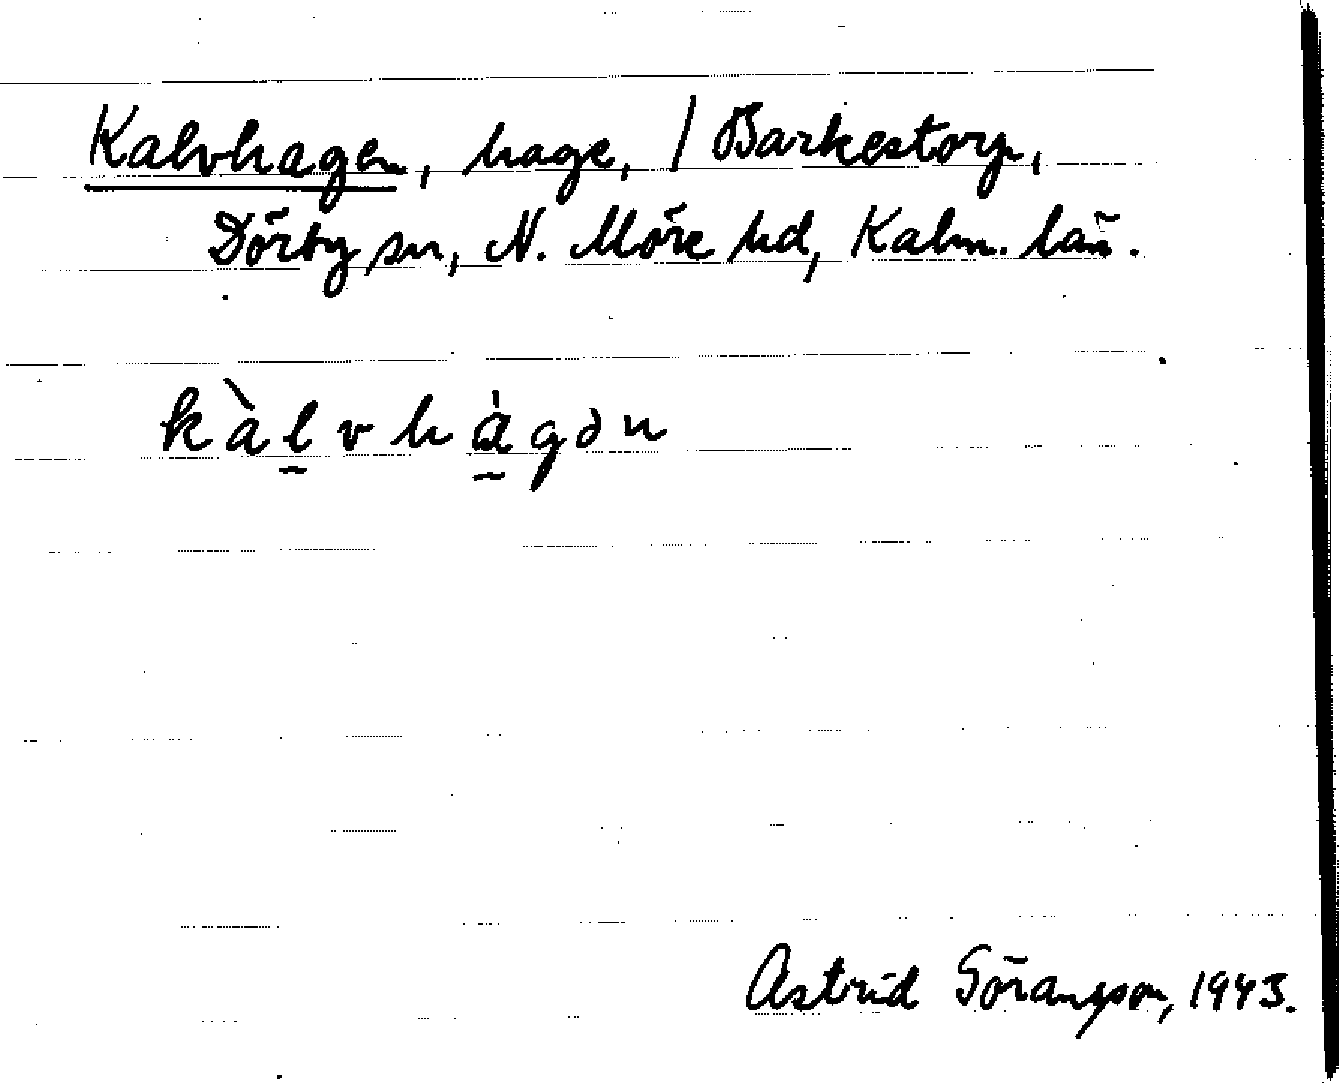 Kalvhagen, hage, / Barkestorp,
Dörby sn, N. Möre hd, Kalm. län.
kàl̰vhà̰gən
Astrid Göransson, 1943.